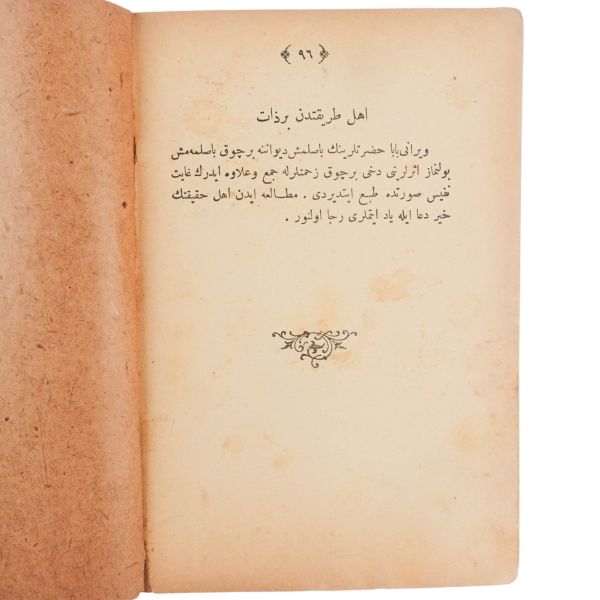 ٩٦
اهل طريقتدن بر ذات
ويرانی بابا حضرتلرينك باصلمش ديواننه برچوق باصلمه‌مش
بولنماز اثرلرينی دخی برچوق زحمتلرله جمع وعلاوه ايدرك غايت
نفيس صورتده طبع ايتديردی . مطالعه ايدن اهل حقيقتك
خير دعا ايله ياد ايتملری رجا اولنور .